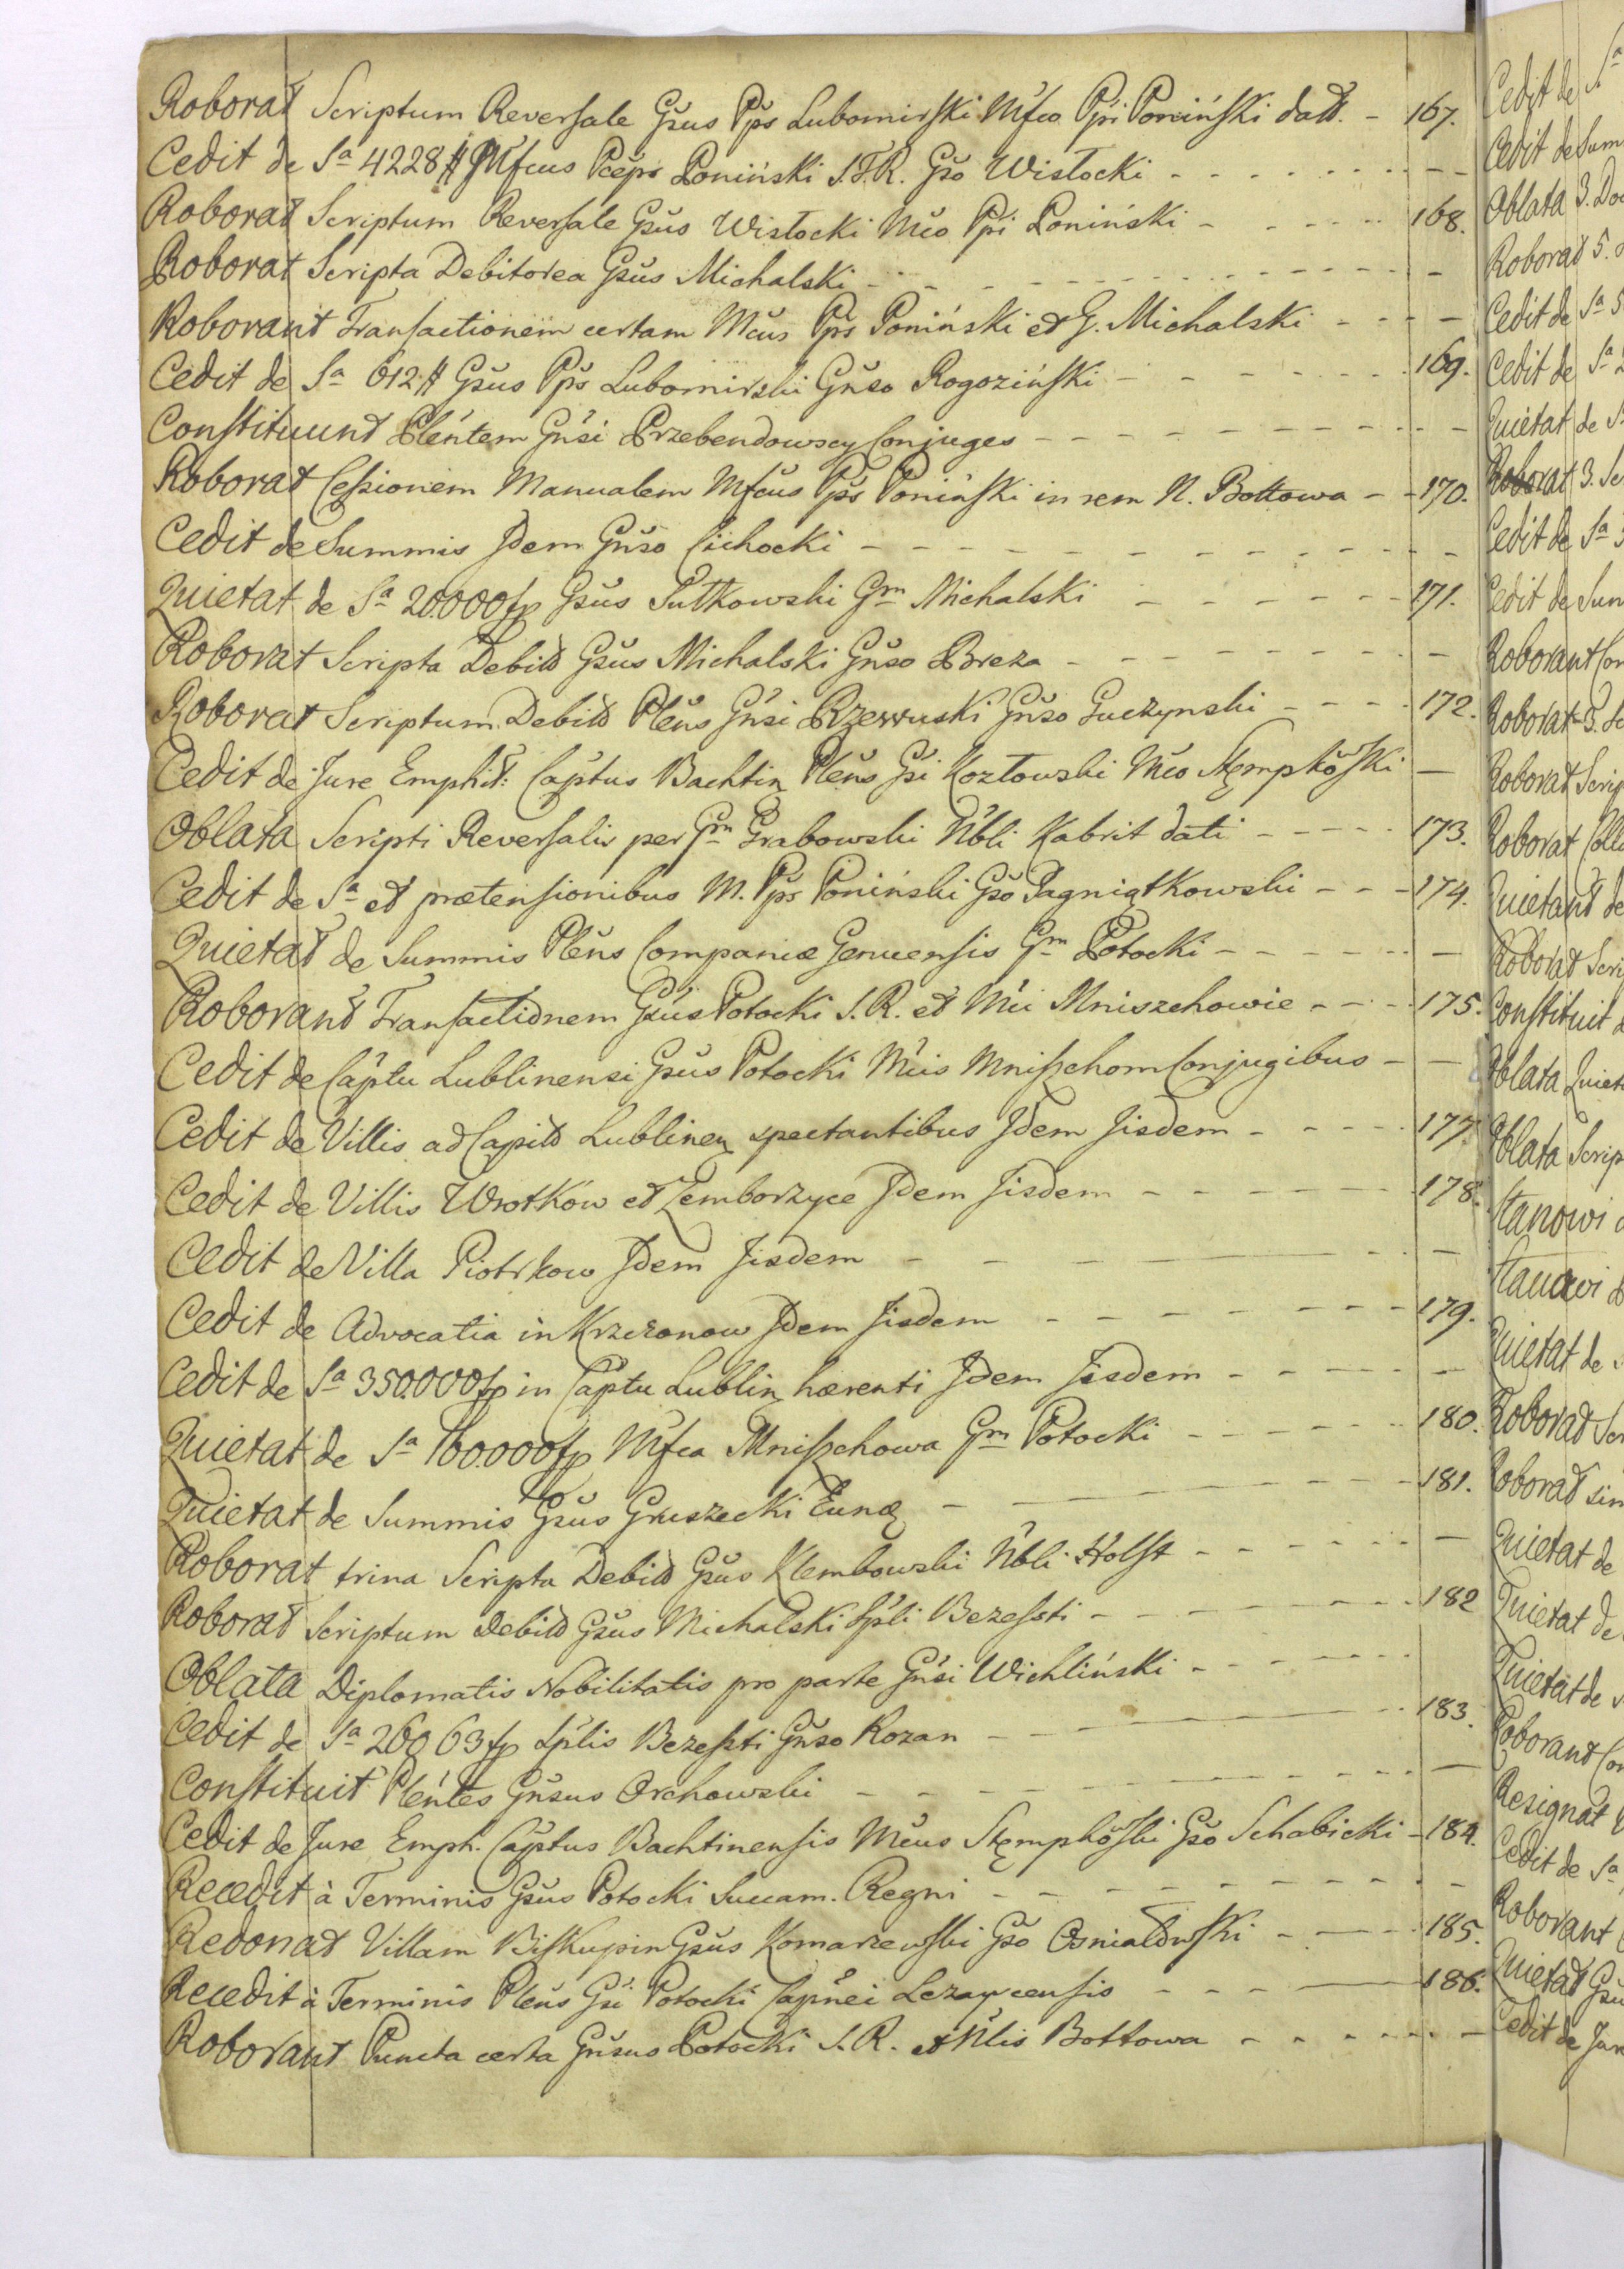 Roborat Scriptum Reversale Gsus Pps Lubomirski Mfco Ppi Poniński datt. - 167.
Cedit de Sa 4228 # Mfcus Pceps Poniński S.T.R. Gso Wisłocki - -
Roborat Scriptum Reversale Gsus Wisłocki Mco Ppi Poniński - 168.
Roborat Scripta Debitorea Gsus Michalski - -
Roborant Transactionem certam Mcus Pps Poniński et G. Michalski - -
Cedit de Sa 612 # Gsus Pps Lubomirski Gnso Rogoziński - 169.
Constituunt Plentem Gnsi Przebendowscy Conjuges - -
Roborat Cessionem Manualem Mfcus Pps Poniński in rem N. Bottowa - 170.
Cedit de Summis Idem Gnso Cichocki - -
Quietat de Sa 20.000 fp Gsus Sutkowski Gm Michalski - 171.
Roborat Scripta Debit Gsus Michalski Gnso Breza - -
Roborat Scriptum Debit Plens Gnsi Rzewuski Gnso Guczynski - 172.
Cedit de Jure Emphit: Captus Bachtin Plens Gsi Kozłowski Mco Stempkoski -
Oblata Scripti Reversalis per Gm Grabowski Nbli Kabrit dati - 173.
Cedit de Sa et prætensionibus M. Pps Poniński Gso Pagniątkowski - 174.
Quietat de Summis Plens Companiæ Genuensis Gm Potocki - -
Roborant Transactionem Gsus Potocki S.R. et Mci Mniszchowie - 175.
Cedit de Captu Lublinensi Gsus Potocki Mcis Mniszchom Conjugibus - -
Cedit de Villis ad Capit Lublinen spectantibus Idem Iisdem - 177.
Cedit de Villis Wrotków et Zemborzyce Idem Iisdem - 178.
Cedit de Villa Piotrkow Idem Iisdem - -
Cedit de Advocatia in Krzczonow Idem Iisdem - 179.
Cedit de Sa 350.000 fp in Captu Lublin hærenti Idem Iisdem - -
Quietat de Sa 100.000 fp Mfca Mniszchowa Gm Potocki - 180.
Quietat de Summis Gsus Gruszecki Eund - 181.
Roborat trina Scripta Debit Gsus Klembowski Nbli Holst - -
Roborat Scriptum Debit Gsus Michalski Spli Bezessti - 182
Oblata Diplomatis Nobilitatis pro parte Gnsi Wichliński -
Cedit de Sa 26063 fp Splis Bezessti Gnso Rozan - 183.
Constituit Plentes Gnsus Orchowski - -
Cedit de Jure Emph. Captus Bachtinensis Mcus Stempkoski Gso Schabicki - 184.
Recedit à Terminis Gsus Potocki Succam. Regni - -
Redonat Villam Biskupin Gsus Komarzewski Gso Osniałowski - 185.
Recedit à Terminis Plens Gsi Potocki Capnei Lezaycensis - 186.
Roborant Puncta certa Gnsus Potocki S.R. et Nlis Bottowa - -
Cedit de Sa
Cedit de Sum
Oblata 3. Do
Roborat 5.
Cedit de Sa
Cedit de Sa
Quietat de S
Roborat 3. Sc
Cedit de Sa
Cedit de Sum
Roborant Con
Roborat 3. Sc
Roborat Scrip
Roborat
Quietant de
Roborat Scri
Constituit
Oblata Quiet
Oblata Scrip
Stanowi
Stanowi
Quietat de
Roborat Scr
Roborat sim
Quietat de
Quietat de
Quietat de
Roborant Con
Resignat
Cedit de Sa
Roborant
Quietat Gsu
Cedit de Jur